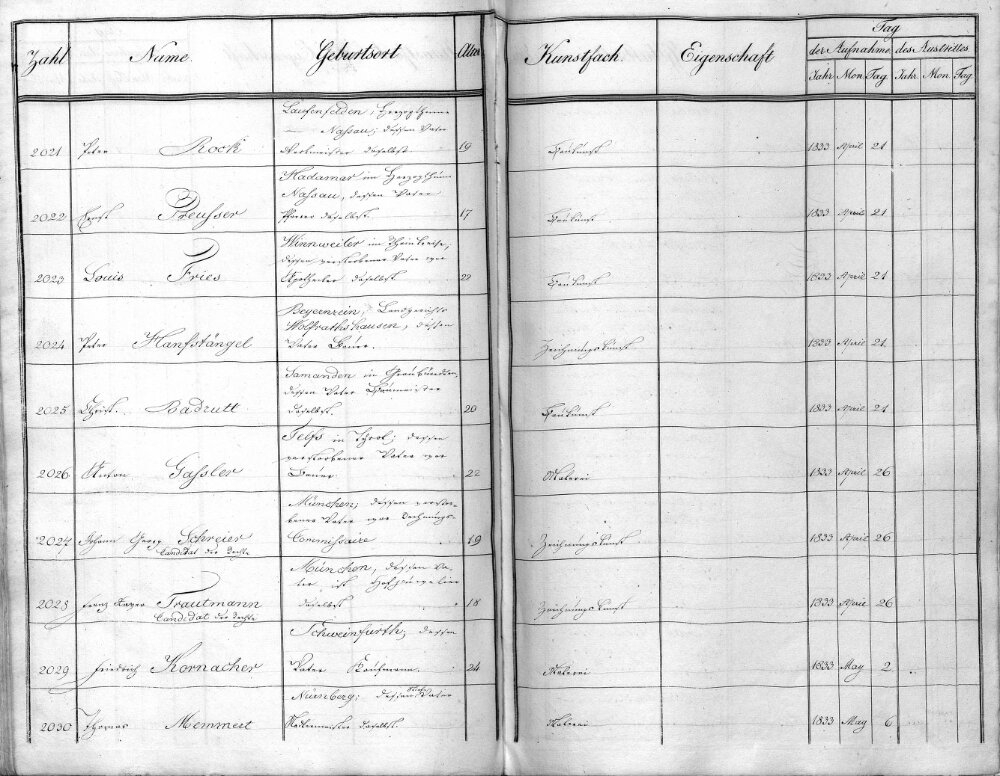 Zahl Name Geburtsort Alter Kunstfach Eigenschaft Tag
der Aufnahme des Austrittes
Jahr Mon Tag Jahr Mon. Tag
Laufenselden, Herzogthum
Nassau, dessen Vater
2021 Peter Rock Werkmeister daselbst 19 Baukunst 1833 April 21
Hadamar im Herzogthum
Nassau, dessen Vater
2022 Ernst Preusser daselbst 17 Baukunst 1833 April 21
Winnweiler im Rheinkreise,
dessen verstorbener Vater war
2023 Louis Fries Apotheker daselbst Baukunst 1833 April 21
Landgerichts
Wolfrathshausen, dessen
2024 Peter Hanfstängel Vater Bauer. Zeichnungskunst 1833 April 21
Samanden in Graubündten,
dessen Vater Baumeister
2025 Christ. Badrutt daselbst 20 Baukunst 1833 April 21
Telfs in Tyrol; dessen
verstorbener Vater war
2026 Anton Gassler Bauer 22 Malerei 1833 April 26
München; dessen verstor-
bener Vater war Rechnungs-
2027 Johann Georg Schreier Commissaire 19 Zeichnungskunst 1833 April 26
Candidat der Rechte
München, dessen Va-
ter ist Hofjuwelier
2028 Franz Xaver Trautmann daselbst 18 Zeichnungskunst 1833 April 26
Candidat der Rechte
Schweinfurth; dessen
2029 Friedrich Kornacher Vater Kaufmann. 24 Malerei 1833 May 2
Nürnberg; dessen Vater
2030 Thomas Memmert daselbst Malerei 1833 May 6